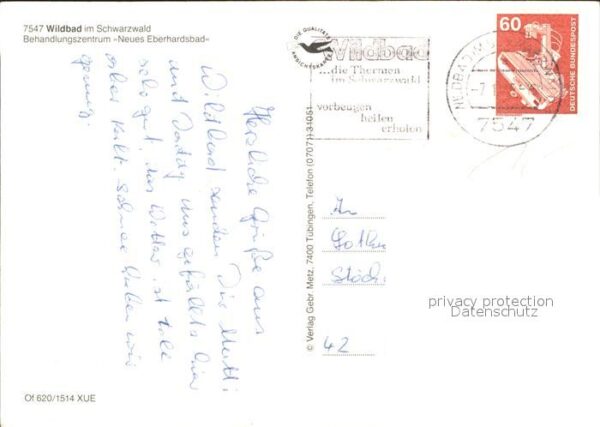 7547 Wildbad im Schwarzwald
Behandlungszentrum »Neues Eberhardsbad«
Herzliche Grüße aus
Wildbad senden Dir Mutti
und Daddy. Uns gefällt's hier
sehr gut, das Wetter ist toll
aber kalt. Schnee haben wir
genug.
Of 620/1514 XUE
© Verlag Gebr. Metz, 7400 Tübingen, Telefon (07071) 31051
DIE QUALITÄTS
ANSICHTSKARTE
Wildbad
...die Thermen
im Schwarzwald
vorbeugen
heilen
erholen
WILDBAD
7547
60
DEUTSCHE BUNDESPOST
An
42
privacy protection
Datenschutz